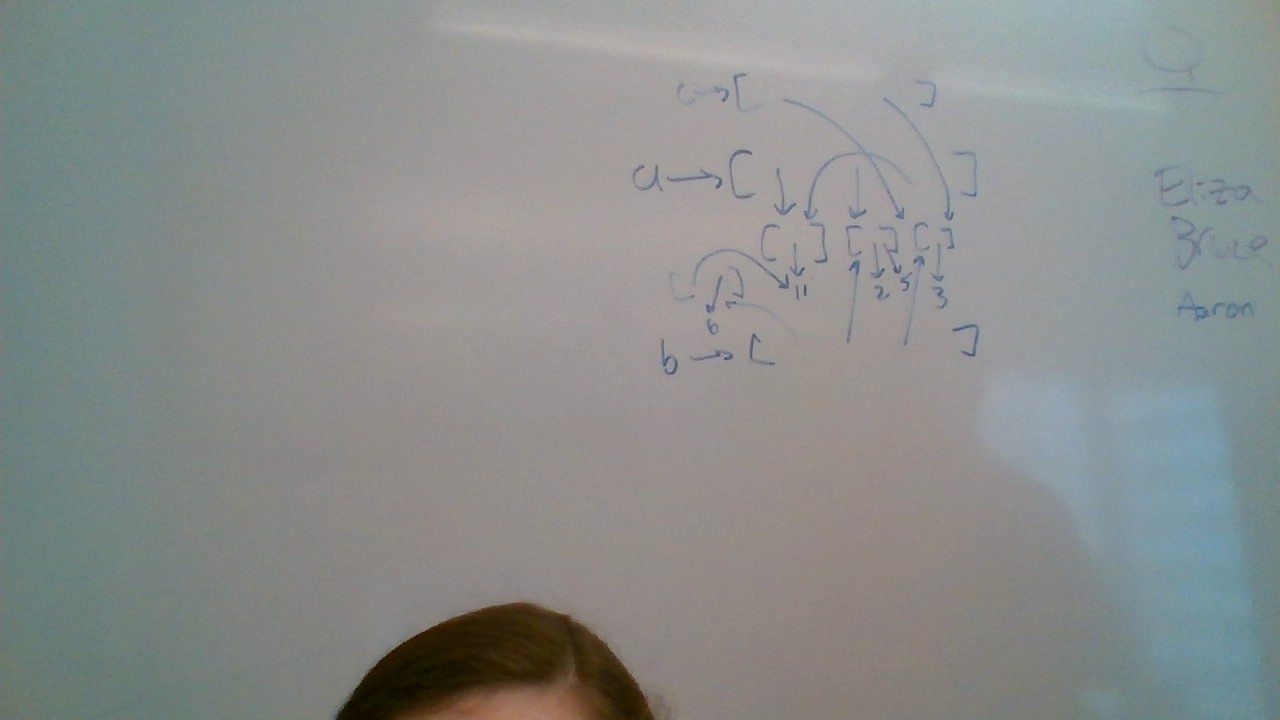 Q
c → [ ]
a → [ ]
[ ] [ ] [ ]
[ ] 11 2 5 3
6
b → [ ]
Eliza
Bruce
Aaron